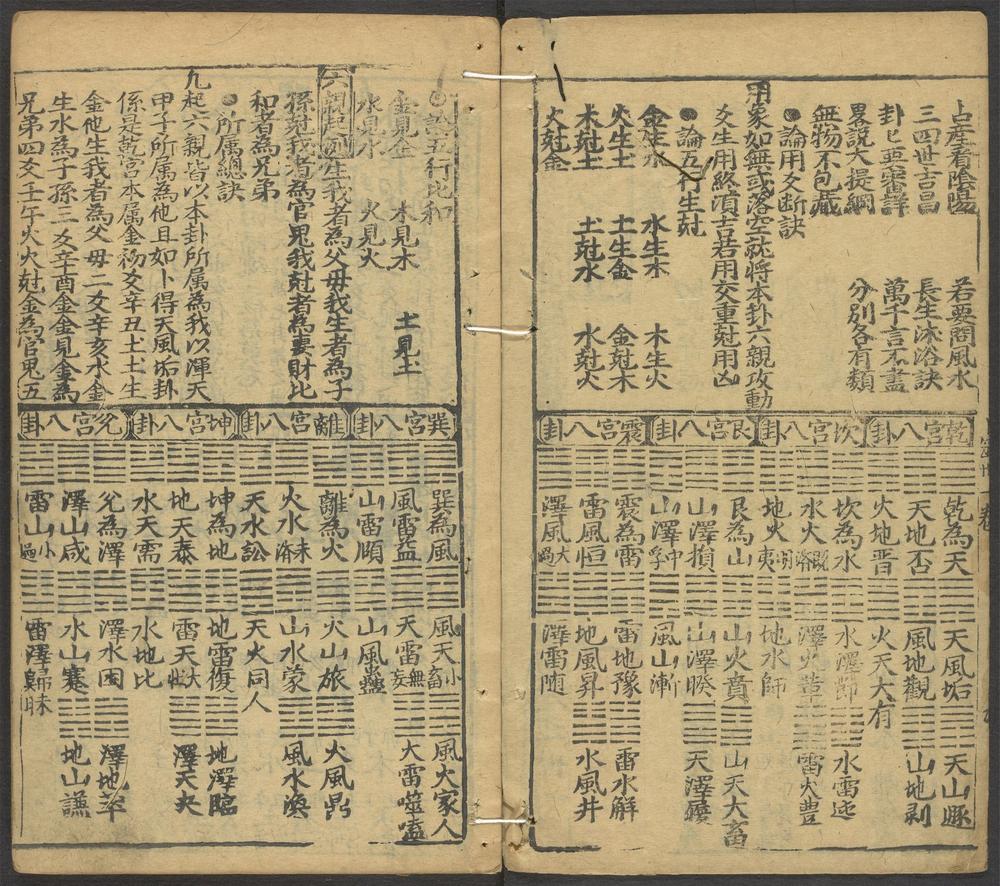 占産看陰陽 若要問風水
三四世吉昌 長生沐浴訣
卦匕要審詳 萬千言不盡
畧說大提綱 分別各有類
無物不包藏
●論用爻断訣
用象如無或落空就將本卦六親攻動
爻生用終湏吉若用交重尅用凶
●論五行生尅
金生水 水生木 木生火
火生土 土生金 金尅木
木尅土 土尅水 水尅火
火尅金
乾宮八卦
乾為天 天風垢 天山遯
天地否 風地觀 山地剥
火地晋 火天大有
坎宮八卦
坎為水 水澤節 水雷屯
水火既濟 澤火革 雷火豊
地火明夷 地水師
艮宮八卦
艮為山 山火賁 山天大畜
山澤損 山澤睽 天澤履
山澤中孚 風山漸
震宮八卦
震為雷 雷地豫 雷水解
雷風恒 地風昇 水風井
澤風大過 澤雷随
●論五行比和
金見金 木見木 土見土
水見水 火見火
六親起例生我者為父毋我生者為子
孫尅我者為官鬼我尅者為妻財比
和者為兄弟
●所属總訣
凢起六親皆以本卦所属為我以渾天
甲子所属為他且如卜得天風垢卦
係是乾宮本属金初爻辛丑土土生
金他生我者為父毋二爻辛亥水金
生水為子孫三爻辛酉金金見金為
兄弟四爻壬午火火尅金為官鬼五
巽宮八卦
巽為風 風天小畜 風火家人
風雷益 天雷無妄 大雷噬嗑
山雷頤 山風蠱
離宮八卦
離為火 火山旅 火風鼎
火水未濟 山水蒙 風水渙
天水訟 天火同人
坤宮八卦
坤為地 地雷復 地澤臨
地天泰 雷天大壯 澤天夬
水天需 水地比
兊宮八卦
兊為澤 澤水困 澤地萃
澤山咸 水山蹇 地山謙
雷山小過 雷澤歸昧